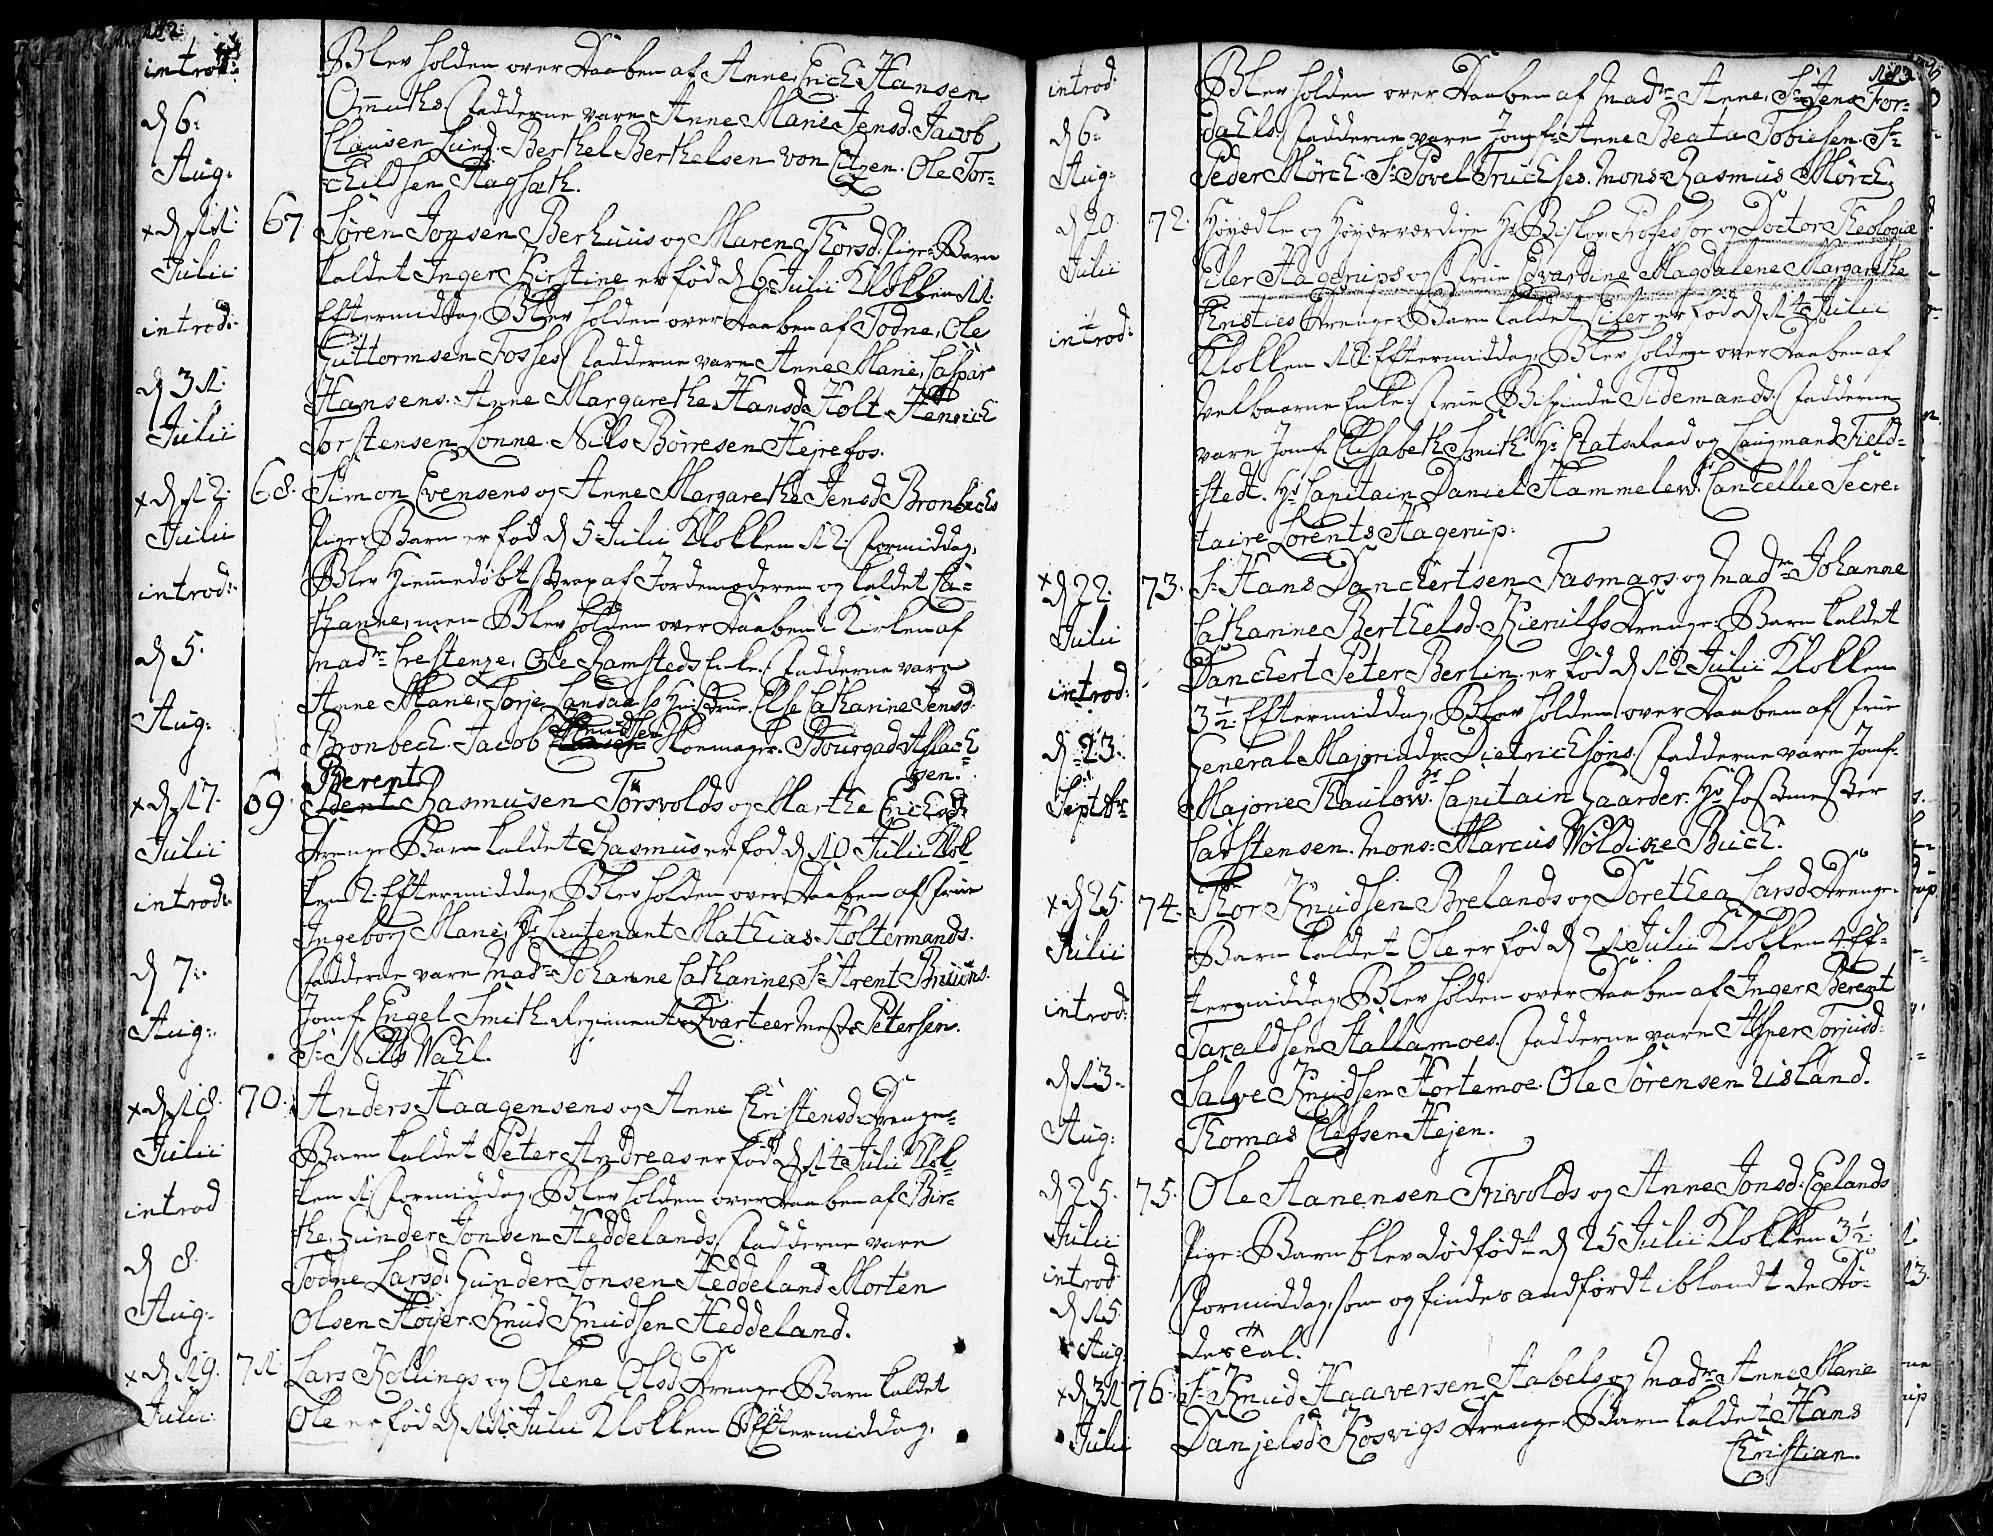 introd:
d 6:
Aug:
Blev holden over Daaben af Anne, Erich Hansen
Omuths. Fadderne vare Anne Marie Jensd. Jacob
Clausen Lund. Berthel Berthelsen von Eitzen. Ole Tor-
childsen Hagsæth.
x d 11:
Julii
introd:
d 31:
Julii
67 Søren Jonsen Berhuus og Maren Thorsd. Pige-Barn
kaldet Inger Kirstine er fød d 6 Julii Klokken 11
Eftermiddag, Blev holden over Daaben af Todne, Ole
Guttormsen Fosses. Fadderne vare Anne Marie, Caspar
Hansens. Anne Margarethe Hansd. Holt. Henrich
Torstensen Lonne. Nils Børresen Hejrefos.
x d 12:
Julii
introd:
d 5.
Aug:
68. Simon Evensens og Anne Margarethe Jensd. Bronbechs
Pige-Barn er fød d 5 Julii Klokken 12 Formiddag,
Blev Hiemmedøbt Strax af Jordemoderen og kaldet Ca-
thanne, men Blev holden over Daaben i Kirken af
Mad:me Crestenze, Ole Ramsteds Enke. Fadderne vare
Anne Marie, Torje Landaas Hustrue. Else Catharine Jensd.
Bronbech. Jacob Knudsen Skomager. Bourgad Aslach-
sen.
x d 17.
Julii
introd:
d 7.
Aug:
69. Berent Rasmusen Torsvolds og Marthe Erichsd.
Drenge Barn kaldet Rasmus er fød d 10 Julii Klok-
ken 2 Eftermiddag, Blev holden over Daaben af Frue
Ingeborg Marie, Hr Lieutenant Mathias Holtermands.
Fadderne vare Mad:me Johanne Cathanine, Sr Arent Bruuns.
Jomf. Engel Smith. Regiements Qvarteermester Petersen.
Sr Nills Wahl.
x d 18.
Julii
introd
d 8.
Aug:
70. Anders Haagensens og Anne Christensd. Drenge-
Barn kaldet Peter Andreas er fød d 14 Julii Klok-
ken 11 Formiddag, Blev holden over Daaben af Bir-
the, Gunder Jonsen Heddelands. Fadderne vare
Todne Larsd. Gunder Jonsen Heddeland. Morten
Olsen Høyer. Knud Knudsen Heddeland.
x d 19.
Julii
71. Lars Kollings og Olene Olsd. Drenge Barn kaldet
Ole er fød d 11 Julii Klokken 6 Eftermiddag,
introd
d 6:
Aug:
Blev holden over Daaben af Mad:me Anne, Sr Jens For-
dahls. Fadderne vare Jomf: Anne Beata Tobiesen. Sr
Peder Mørch. Sr Povel Truchses. Mons: Rasmus Mørch.
d 20.
Julii
introd:
72. Høyædle og Høyærværdige Hr Biskop, Professor og Doctor Theologiæ
Eiler Hagerups og Frue Edvardine Magdalene Margarethe
Christies Drenge Barn kaldet Eiler er fød d 14 Julii
Klokken 12 Eftermiddag, Blev holden over Daaben af
Velbaarne Enke-Frue Bispinde Tidemands. Fadderne
vare Jomf: Elisabeth Smith. Hr Etatsraad og Laugmand Field-
sted. Hr Capitain Daniel Hammelew. Cancellie Secre-
taire Lorents Hagerup.
x d 22.
Julii
introd:
d 23.
Septbr
73. Sr Hans Danchertsen Fasmars og Mad:me Johanne
Cathanine Berthelsd. Kierulfs Drenge Barn kaldet
Danchert Peter Berlin er fød d 12 Julii Klokken
3 1/2 Eftermiddag, Blev holden over Daaben af Frue
General Majorinde Dietrichsøns. Fadderne vare Jomf:
Majorie Thaulow. Hr Capitain Gaarder. Hr Postmester
Carstensen. Mons: Marcus Wøldixe Buch.
x d 25.
Julii
introd:
d 13.
Aug:
74. Thor Knudsen Brelands og Dorethea Larsd. Drenge-
Barn kaldet Ole er fød d 21 Julii Klokken 4 Ef-
termiddag, Blev holden over Daaben af Inger Berent
Taraldsen Stallamoes. Fadderne vare Asper Torjusd.
Salve Knudsen Hortemoe. Ole Sørensen Uisland.
Thomas Elefsen Hejen.
d 25.
Julii
introd
d 15.
Aug:
75. Ole Aanensen Trivolds og Anne Jonsd. Egelands
Pige-Barn blev dødfødt d 25 Julii Klokken 3 1/2
Formiddag, som og findes andførdt iblandt de Dø-
des Tal.
x d 31
Julii
76. Sr Knud Haaversen Aabels og Mad:me Anne Marie
Danjelsd. Kosvigs Drenge Barn kaldet Hans
Christian.